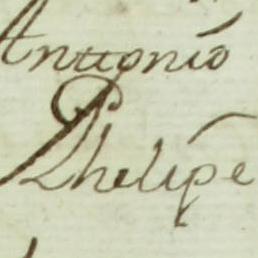 Anttonio
Phelipe